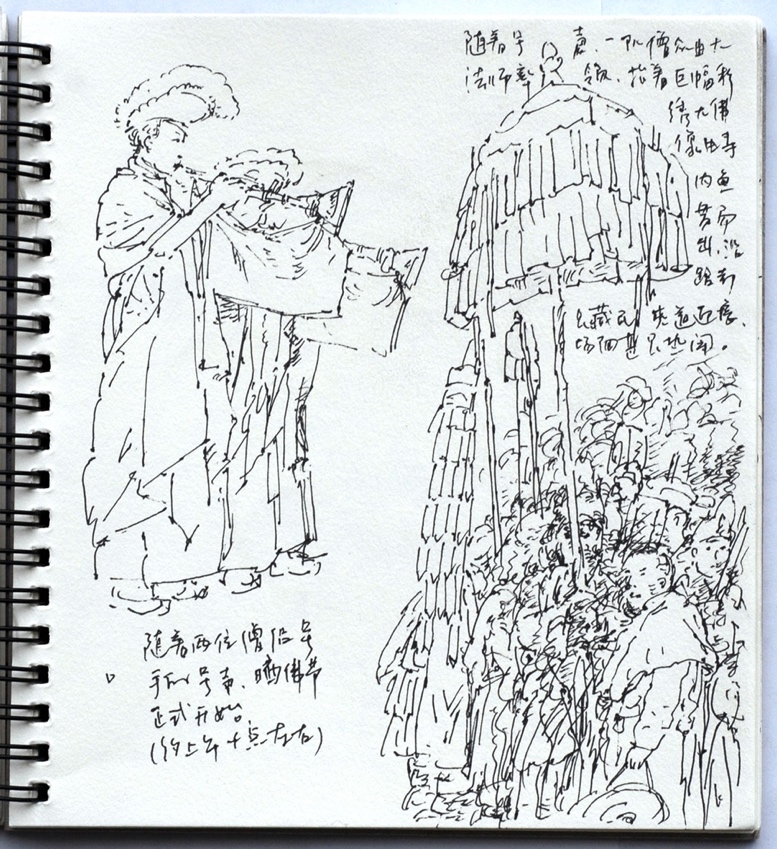 随着号声、一队僧众由大
法师率领、抬着巨幅彩
绣大佛
像由寺
内鱼
贯而
出、沿
路都
是藏民夹道迎候、
场面甚是热闹。
随着两位僧侣号
手的号声、晒佛节
正式开始。
(约上午十点左右)